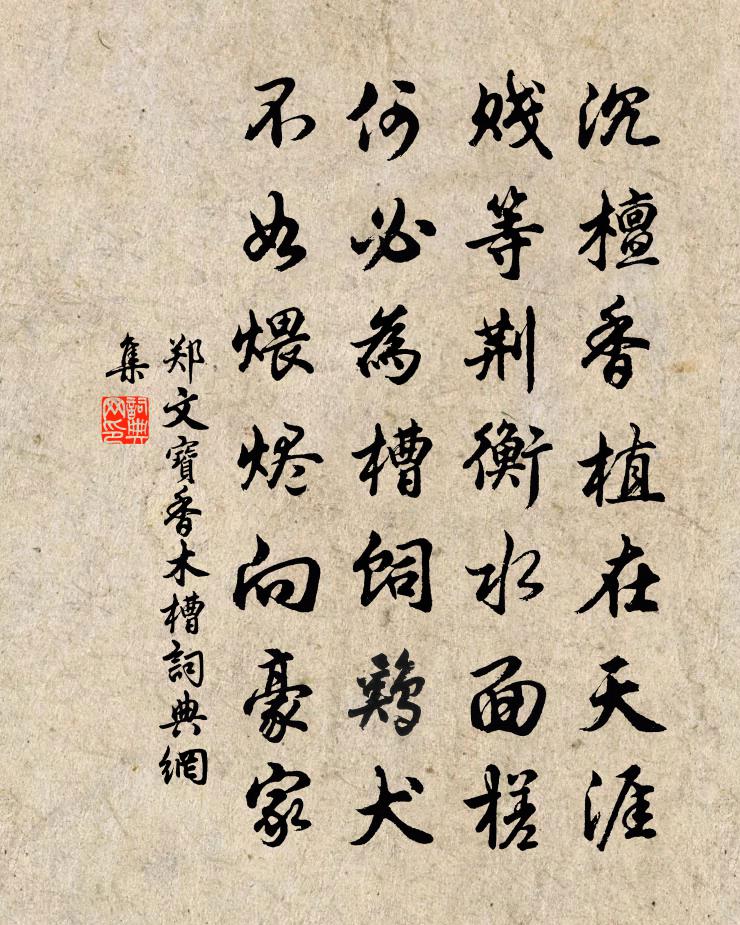 沉檀香植在天涯
贱等荆衡水面槎
何必為槽飼鷄犬
不如煨烬向豪家
郑文寶香木槽詞典網
集
詞典
网印